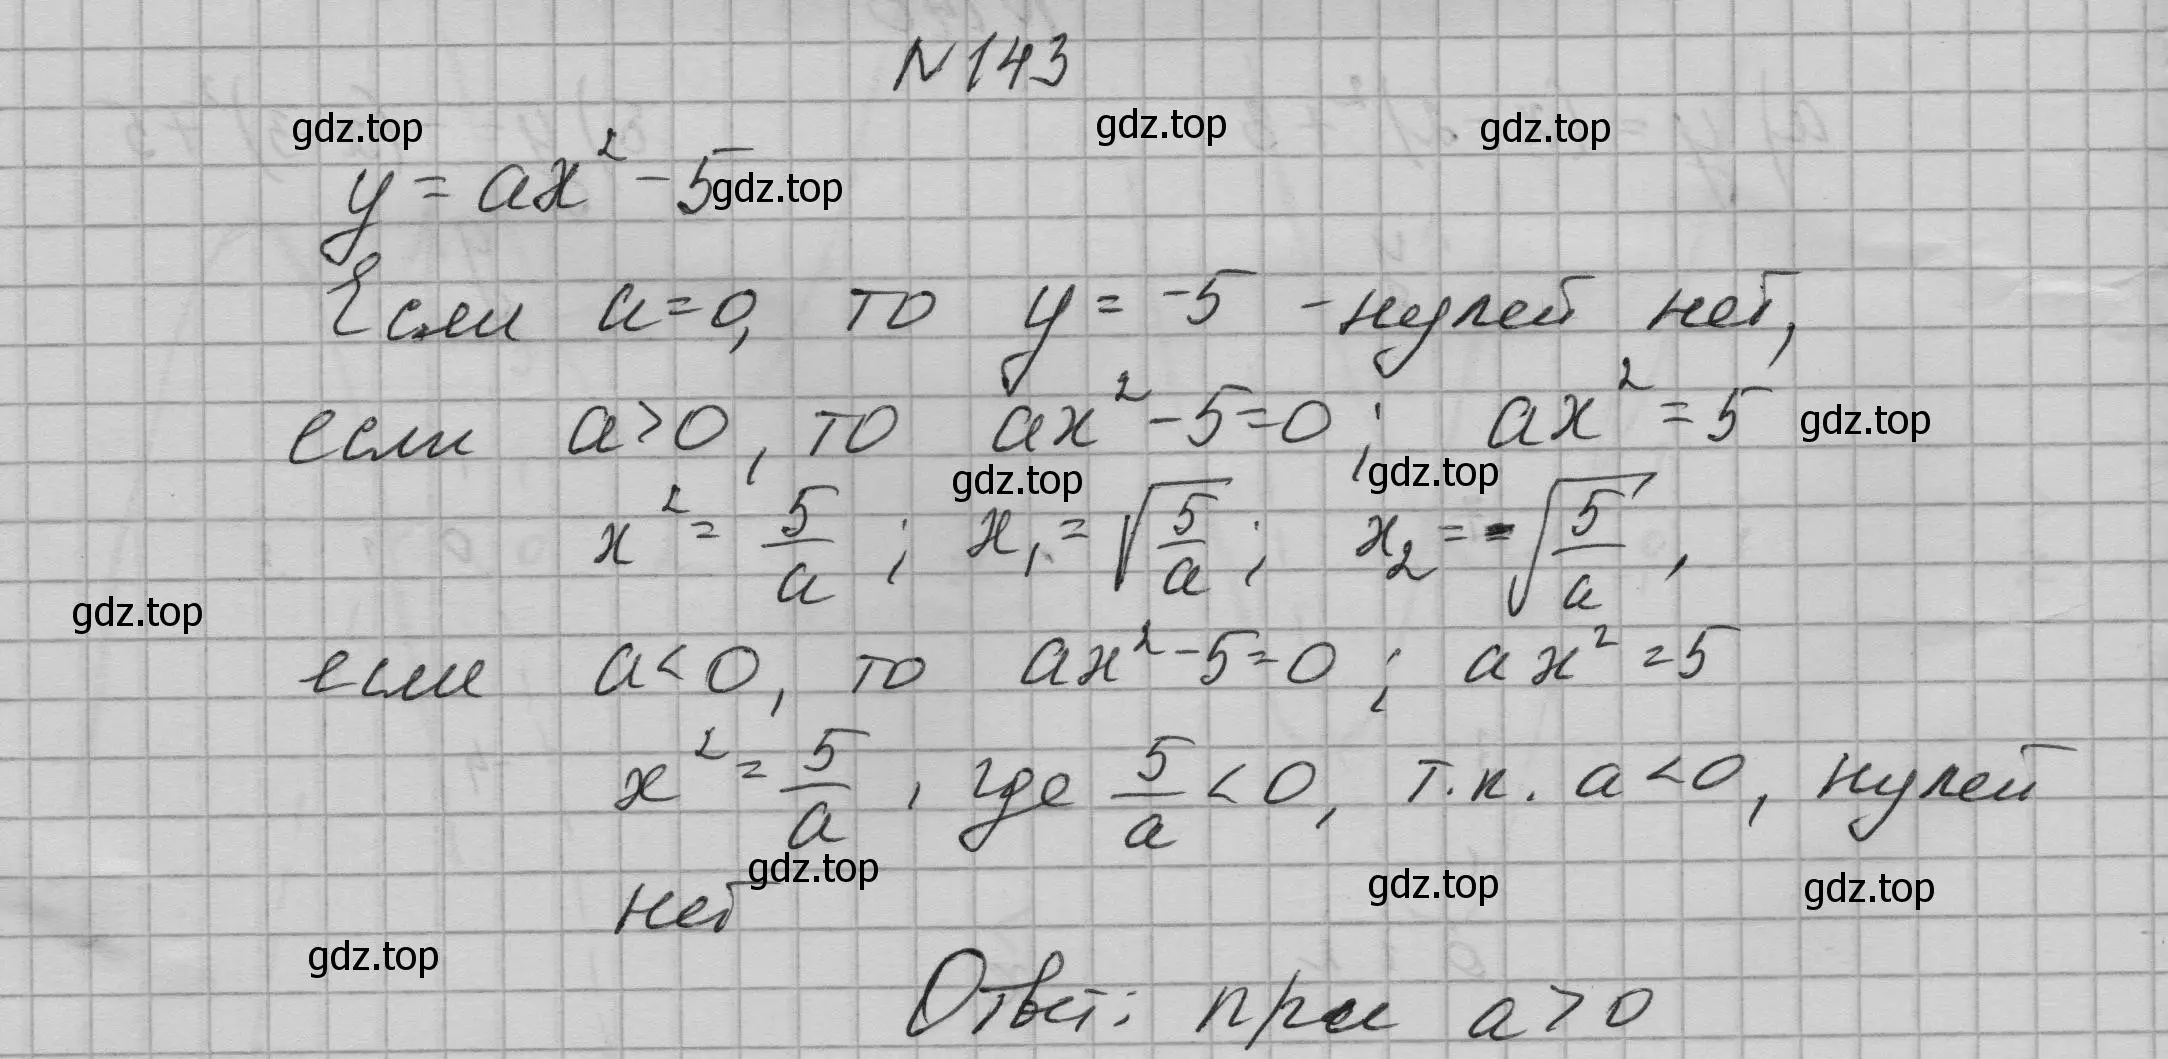 N 143
gdz.top gdz.top gdz.top
y = ax² - 5 gdz.top
Если a = 0, то y = -5 - нулей нет,
если a > 0, то ax² - 5 = 0; ax² = 5 gdz.top
gdz.top gdz.top
x² = 5/a; x₁ = √(5/a); x₂ = -√(5/a),
gdz.top
если a < 0, то ax² - 5 = 0; ax² = 5
x² = 5/a, где 5/a < 0, т.к. a < 0, нулей
gdz.top gdz.top gdz.top
нет
gdz.top
Ответ: при a > 0